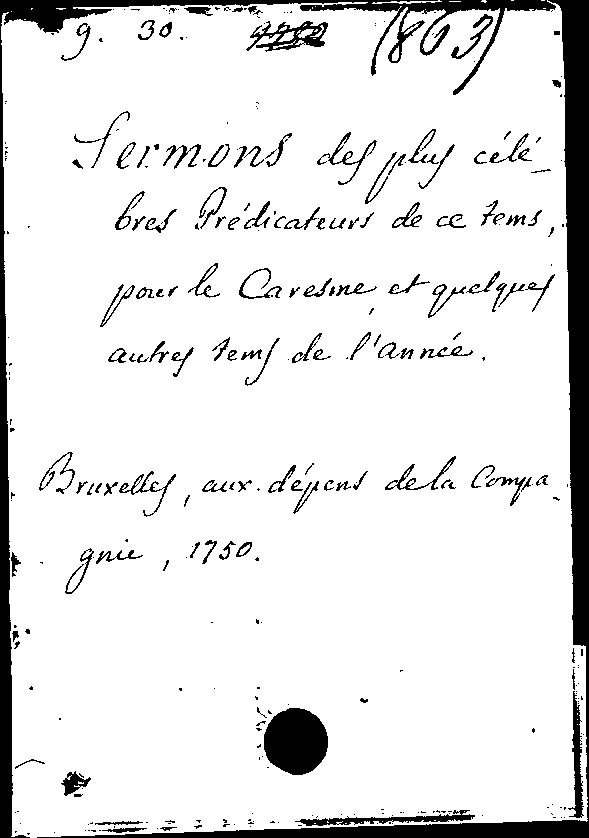 g. 30. (863)
Sermons des plus célé-
bres Prédicateurs de ce tems,
pour le Caresme, et quelques
autres tems de l'année.
Bruxelles, aux dépens de la Compa-
gnie, 1750.